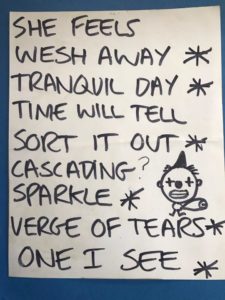 SHE FEELS
WESH AWAY *
TRANQUIL DAY *
TIME WILL TELL
SORT IT OUT *
CASCADING?
SPARKLE *
VERGE OF TEARS *
ONE I SEE *